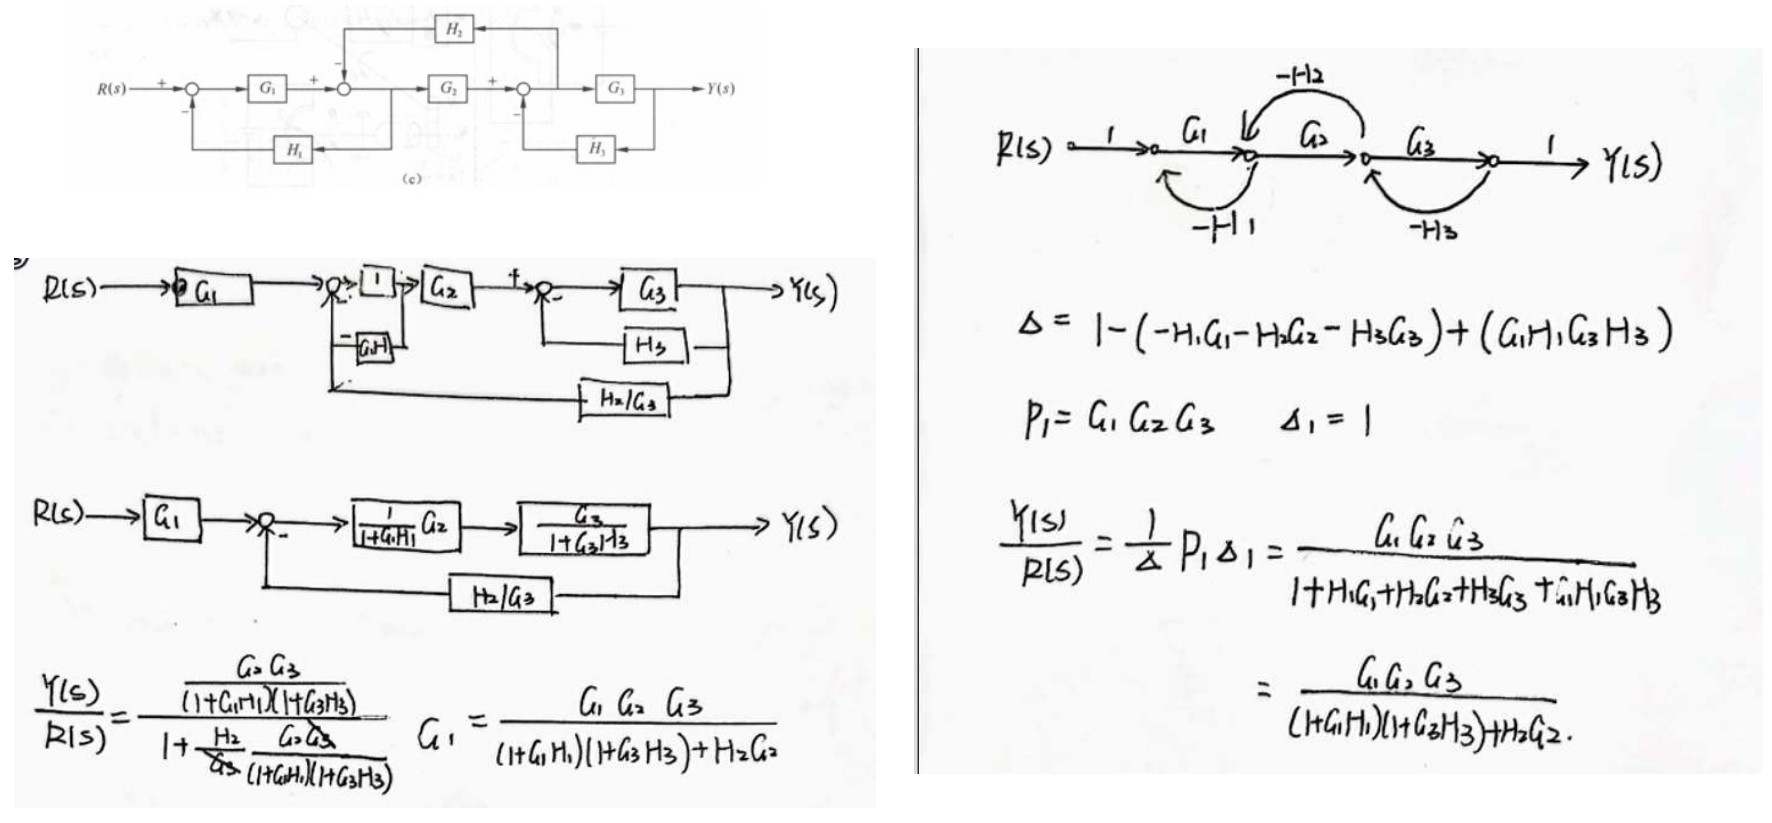 H₂
R(s) + G₁ + − G₂ + G₃ Y(s)
− −
H₁ H₃
(c)
R(s) G₁ 1 G₂ + − G₃ Y(s)
− G₁H₁ H₃
H₂/G₃
R(s) G₁ − 1/(1+G₁H₁) G₂ G₃/(1+G₃H₃) Y(s)
H₂/G₃
Y(s)/R(s) = [G₂G₃/((1+G₁H₁)(1+G₃H₃))] / [1 + H₂/G₃ · G₂G₃/((1+G₁H₁)(1+G₃H₃))] G₁ = G₁ G₂ G₃/((1+G₁H₁)(1+G₃H₃)+H₂G₂)
-H₂
R(s) 1 G₁ G₂ G₃ 1 Y(s)
-H₁ -H₃
Δ = 1-(-H₁G₁-H₂G₂-H₃G₃)+(G₁H₁G₃H₃)
P₁ = G₁ G₂ G₃ Δ₁ = 1
Y(s)/R(s) = 1/Δ P₁ Δ₁ = G₁ G₂ G₃/(1+H₁G₁+H₂G₂+H₃G₃+G₁H₁G₃H₃)
= G₁ G₂ G₃/((1+G₁H₁)(1+G₃H₃)+H₂G₂.